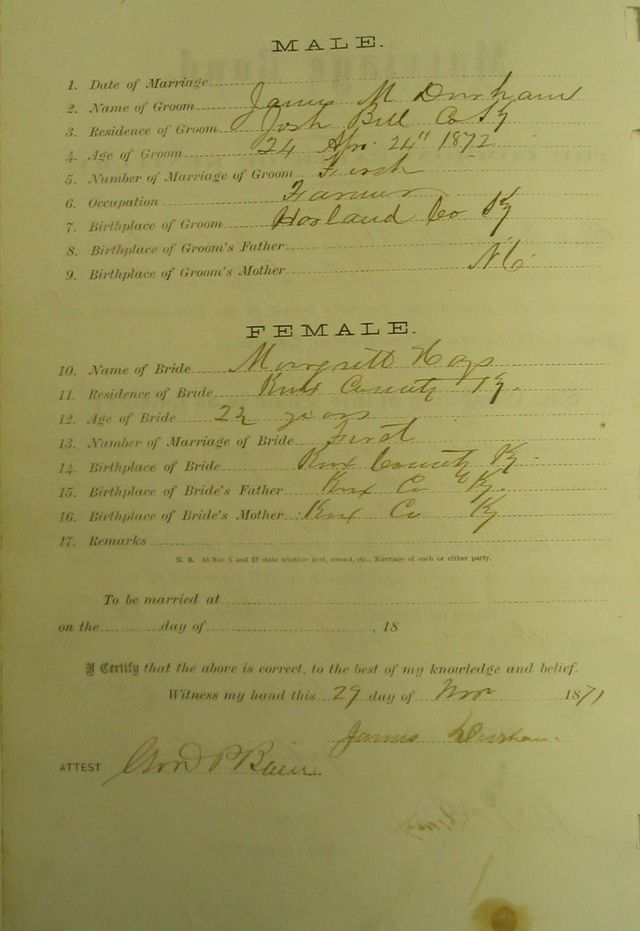 MALE.
1. Date of Marriage
2. Name of Groom James M Durham
3. Residence of Groom Josh Bell Co Ky
4. Age of Groom 24 Apr. 24" 1872
5. Number of Marriage of Groom First
6. Occupation Farmer
7. Birthplace of Groom Harland Co Ky
8. Birthplace of Groom's Father
9. Birthplace of Groom's Mother N C
FEMALE.
10. Name of Bride Margrett Hays
11. Residence of Bride Knox County Ky.
12. Age of Bride 22 years
13. Number of Marriage of Bride First
14. Birthplace of Bride Knox County Ky
15. Birthplace of Bride's Father Knx Co Ky
16. Birthplace of Bride's Mother Knx Co Ky
17. Remarks
N. B. At Nos 5 and 12 state whether first, second, etc., Marriage of each or either party.
To be married at
on the day of , 18
I Certify that the above is correct, to the best of my knowledge and belief.
Witness my hand this 29 day of Nov 1871
James Durham
ATTEST